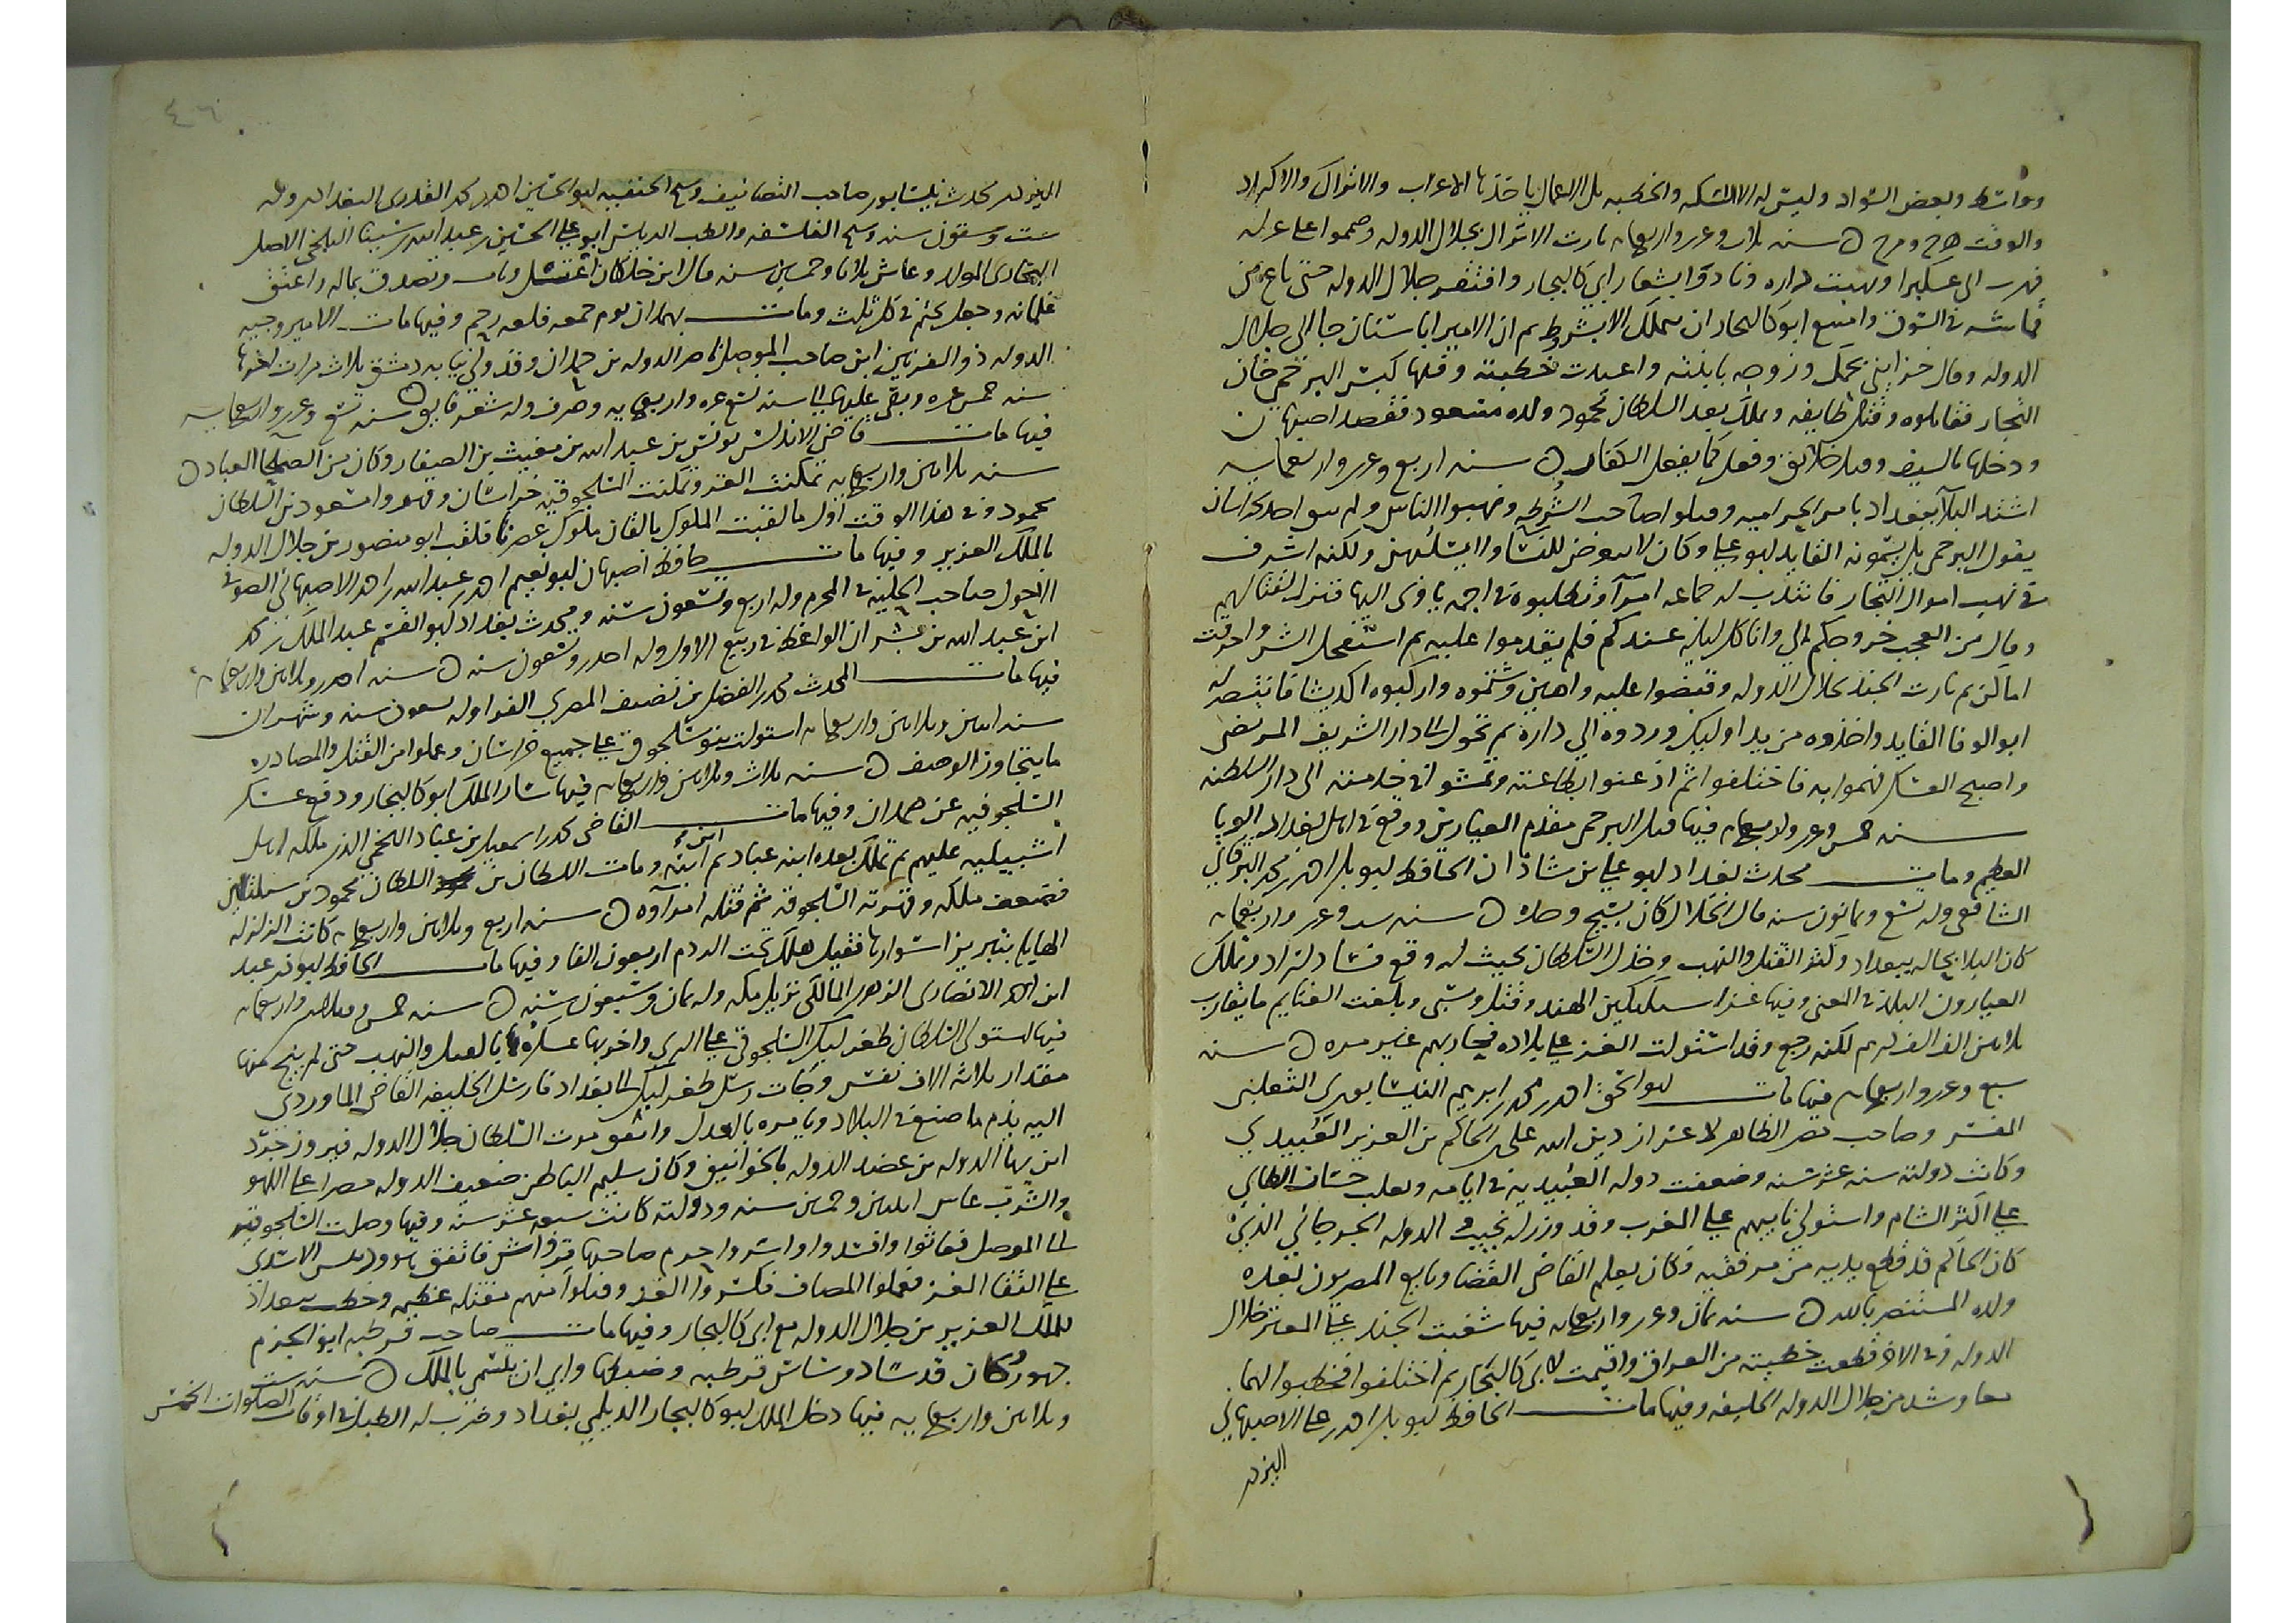 وواسط وبعض السواد وليس له الا السكة والخطبة بل الاعمال ياخذها الاعراب والاتراك والاكراد
والوقت هرج ومرج ه سنه ثلاث وعشر واربعمايه ثارت الاتراك بجلال الدوله وصمموا على عزله
فهرب الى عكبرا ونهبت داره ونادوا بشعار ابي كاليجار وافتقر جلال الدوله حتى باع من
قماشه في السوق وامتنع ابو كاليجار ان يتملك الا بشروط ثم ان الامير اباسنان جا الى جلال
الدوله وقال خزايني بحكمك وزوجه بابنته واعيدت خطبته وفيها كبس البرجمي خان
التجار فقاتلوه وقتل طايفه وتملك بعد السلطان محمود ولده مسعود فقصد اصبهان
ودخلها بالسيف وقتل خلايق وفعل كما يفعل الكفار ه سنه اربع وعشر واربعمايه
اشتد البلآ ببغداد بامر الحراميه وقتلوا صاحب الشرطه ونهبوا الناس ولم يبق احد
يقول البرجمي بل يسمونه القايد ابو علي وكان لا يتعرض للنسا ولا يستلبهن ولكنه اسرف
في نهب اموال التجار فانتدب له جماعه امرآ وتطلبوه في اجمه ياوى اليها فنزل لقتالهم
وقال من العجب خروجكم الي وانا كل ليله عندكم فلم يقدموا عليه ثم استفحل الشر واحرقت
اماكن ثم ثارت الجند بجلال الدوله وقبضوا عليه واهين وشتموه واركبوه اكديشا فانتصر له
ابو الوفا القايد واخذوه من يد اوليك وردوه الى داره ثم تحول الى دار الشريف المرتضى
واصبح العسكر فهموا به فاختلفوا ثم اذعنوا بطاعته ومشوا في خدمته الى دار السلطنه
سنه خمس وعشر واربعمايه فيها قتل البرجمي مقدم العيارين ووقع في اهل بغداد الوبا
العظيم ومات محدث بغداد ابو علي بن شاذان الحافظ ابو بكر احمد بن محمد البرقاني
الشافعي وله تسع وثمانون سنه قال الخلال كان نسيج وحده ه سنه ست وعشر واربعمايه
كان البلا بحاله ببغداد وكثر القتل والنهب وخذل السلطان بحيث لو وقع فساد لزاد وتملك
العيارون البلد في المعنى وفيها غزا سبكتكين الهند وقتل وسبى وبلغت الغنايم ما يقارب
ثلاثين الف الف درهم لكنه رجع وقد استولت الغز على بلاده فحاربهم غير مره ه سنه
سبع وعشر واربعمايه فيها مات ابو اسحق احمد بن محمد بن ابرهيم النيسابوري الثعلبي
المفسر وصاحب مصر الظاهر لاعزاز دين الله علي بن الحاكم بن العزيز العبيدي
وكانت دولته سنه عشر سنه وضعفت دوله العبيديه في ايامه وتغلب حسان الطايي
على اكثر الشام واستولى نايبهم على المغرب وقد وزر له نجيب الدوله الجرجاني الذي
كان الحاكم قد قطع يديه من مرفقيه وكان يعلم القاضي القضا وتابع المصريون بعده
ولده المستنصر بالله ه سنه ثمان وعشر واربعمايه فيها شغبت الجند على المعتز جلال
الدوله وفي الاخر قطعت خطبته من العراق واقيمت لابي كاليجار ثم اختلفوا فخطبوا لهما
معا وشد من جلال الدوله الخليفه وفيها مات الحافظ ابو بكر احمد بن علي الاصبهاني
اليزدي
٤٦
اليزدي محدث نيسابور صاحب التصانيف وشيخ الحنفيه ابو الحسين احمد بن محمد القدوري البغدادي وله
ست وستون سنه وشيخ الفلسفه والطب الريس ابو علي الحسين بن عبد الله بن سينا البلخي الاصل
البخاري المولد وعاش ثلاثا وخمسين سنه قال ابن خلكان اغتسل وتاب وتصدق بماله واعتق
غلمانه وجعل يختم في كل ثلث ومات بهمدان يوم جمعه فلعه رحم وفيها مات الامير وجيه
الدوله ذو القرنين ابن صاحب الموصل ناصر الدوله بن حمدان وقد ولي نيابه دمشق ثلاث مرات اخرها
سنه خمس عشره وبقي عليها الى سنه تسع عشره واربعمايه وصرف وله شعر فايق ه سنه تسع وعشر واربعمايه
فيها مات قاضي الاندلس يونس بن عبد الله بن مغيث بن الصفار وكان من الصلحا العباد ه
سنه ثلاثين واربعمايه تمكنت الغز وتملكت السلجوقيه خراسان وقهروا مسعود بن السلطان
محمود وفي هذا الوقت اول ما لقبت الملوك بالقاب ملوك عصرنا فلقب ابو منصور بن جلال الدوله
بالملك العزيز وفيها مات حافظ اصبهان ابو نعيم احمد بن عبد الله بن احمد الاصبهاني الصوفي
الاحول صاحب الحليه في المحرم وله اربع وتسعون سنه ومحدث بغداد ابو القسم عبد الملك بن محمد
ابن عبد الله بن بشران الواعظ في ربيع الاول وله احدى وتسعون سنه ه سنه احدى وثلاثين واربعمايه
فيها مات المحدث محمد بن الفضل بن نظيف المصري الفرا وله تسعون سنه وشهران
سنه اثنين وثلاثين واربعمايه استولت بنو سلجوق على جميع خراسان وعملوا من القتل والمصادره
ما يتجاوز الوصف ه سنه ثلاث وثلاثين واربعمايه فيها سار الملك ابو كاليجار ودفع عسكر
السلجوقيه عن همدان وفيها مات القاضي محمد بن اسمعيل بن عباد اللخمي الذي ملكه اهل
اشبيليه عليهم ثم تملك بعده ابنه عباد ثم ابن ابنه ومات السلطان بن السلطان محمود بن سبكتكين
فضعف ملكه وقهرته السلجوقيه ثم قتله امرآوه ه سنه اربع وثلاثين واربعمايه كانت الزلزله
الهايله بتبريز اسوارها فقيل هلك تحت الردم اربعون الفا وفيها مات الحافظ ابو ذر عبد
ابن احمد الانصاري الهروي المالكي نزيل مكه وله ثمان وسبعون سنه ه سنه خمس وثلاثين واربعمايه
فيها استولى السلطان طغرلبك السلجوقي على الري واخربها عسكره بالقتل والنهب حتى لم ينج منها
مقدار ثلاثة الاف نفس وجات رسل طغرلبك الى بغداد فارسل الخليفه القاضي الماوردي
اليه يذم ما صنع في البلاد ويامره بالعدل واتفق موت السلطان جلال الدوله فيروز جرد
ابن بهآ الدوله بن عضد الدوله بالخوانيق وكان سليم الباطن ضعيف الدوله مصرا على اللهو
والشرب عاش اثنين وخمسين سنه ودولته كانت سبعه عشر سنه وفيها وصلت السلجوقيه
الى الموصل فعاثوا وافسدوا واسروا حرم صاحبها قرواش فاتفق هو ودبيس الاسدي
على التقا الغز فعملوا المصاف فكسروا الغز وقتلوا منهم مقتله عظيمه وخطب ببغداد
للملك العزيز بن جلال الدوله مع ابي كاليجار وفيها مات صاحب قرطبه ابو الحزم
جهور كان قد ساد وساس قرطبه وضبطها وابى ان يتسمى بالملك ه سنه ست
وثلاثين واربعمايه فيها دخل الملك ابو كاليجار الديلمي بغداد وضرب له الطبل في اوقات الصلوات الخمس